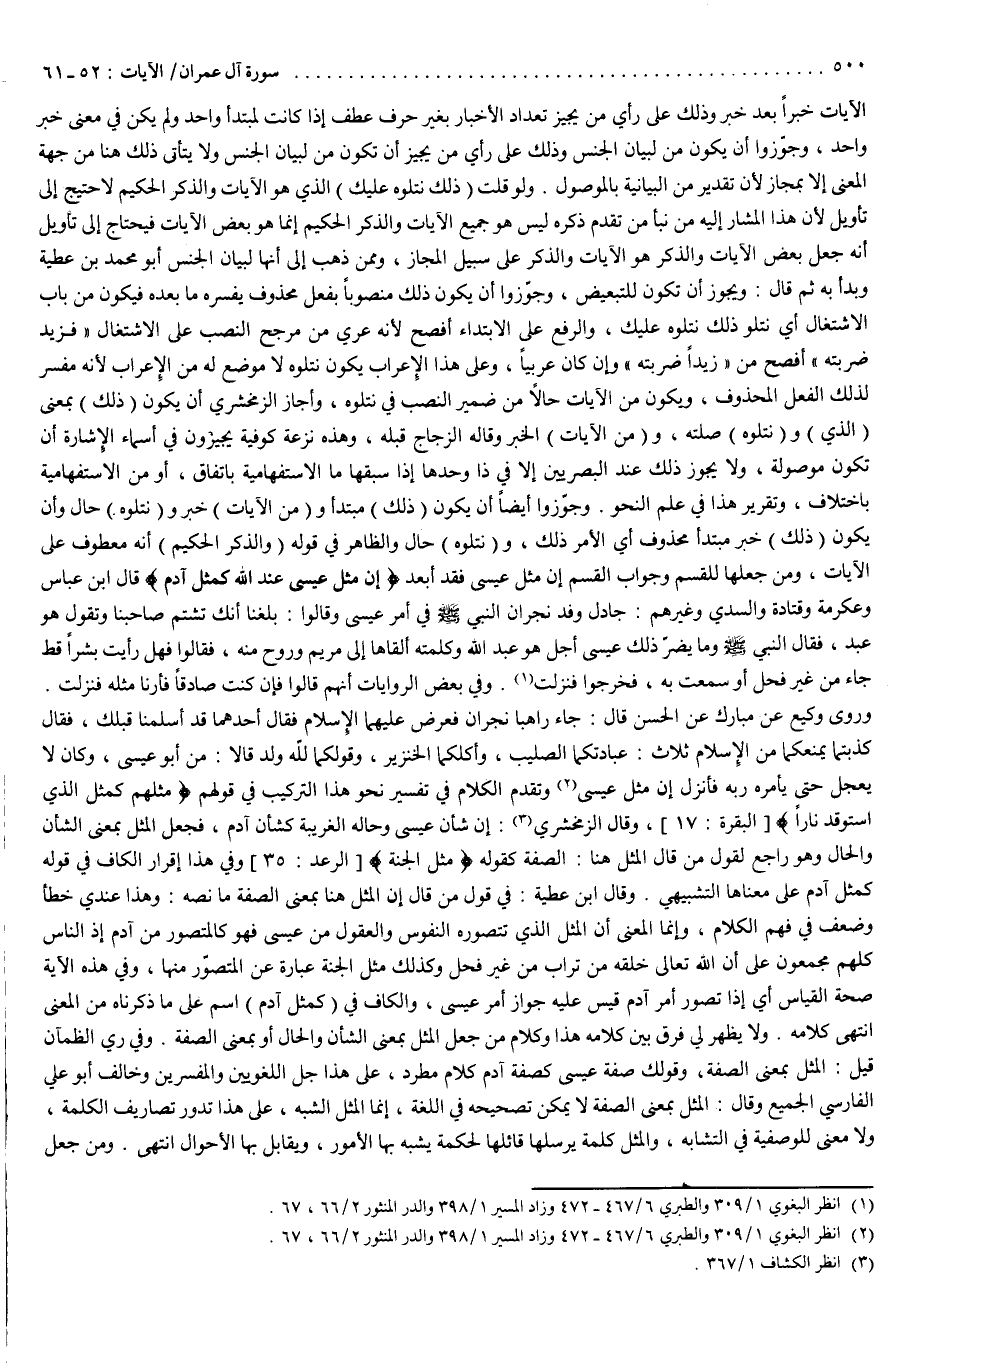 ٥٠٠ ................................................ سورة آل عمران/ الآيات : ٥٢ ـ ٦١
الآيات خبراً بعد خبر وذلك على رأي من يجيز تعداد الأخبار بغير حرف عطف إذا كانت لمبتدأ واحد ولم يكن في معنى خبر
واحد ، وجوّزوا أن يكون من لبيان الجنس وذلك على رأي من يجيز أن تكون من لبيان الجنس ولا يتأتى ذلك هنا من جهة
المعنى إلا بمجاز لأن تقدير من البيانية بالموصول . ولو قلت ( ذلك نتلوه عليك ) الذي هو الآيات والذكر الحكيم لاحتيج إلى
تأويل لأن هذا المشار إليه من نبأ من تقدم ذكره ليس هو جميع الآيات والذكر الحكيم إنما هو بعض الآيات فيحتاج إلى تأويل
أنه جعل بعض الآيات والذكر هو الآيات والذكر على سبيل المجاز ، وممن ذهب إلى أنها لبيان الجنس أبو محمد بن عطية
وبدأ به ثم قال : ويجوز أن تكون للتبعيض ، وجوّزوا أن يكون ذلك منصوباً بفعل محذوف يفسره ما بعده فيكون من باب
الاشتغال أي نتلو ذلك نتلوه عليك ، والرفع على الابتداء أفصح لأنه عري من مرجح النصب على الاشتغال « فزيد
ضربته » أفصح من « زيداً ضربته » وإن كان عربياً ، وعلى هذا الإعراب يكون نتلوه لا موضع له من الإعراب لأنه مفسر
لذلك الفعل المحذوف ، ويكون من الآيات حالاً من ضمير النصب في نتلوه ، وأجاز الزمخشري أن يكون ( ذلك ) بمعنى
( الذي ) و ( نتلوه ) صلته ، و ( من الآيات ) الخبر وقاله الزجاج قبله ، وهذه نزعة كوفية يجيزون في أسماء الإشارة أن
تكون موصولة ، ولا يجوز ذلك عند البصريين إلا في ذا وحدها إذا سبقها ما الاستفهامية باتفاق ، أو من الاستفهامية
باختلاف ، وتقرير هذا في علم النحو . وجوّزوا أيضاً أن يكون ( ذلك ) مبتدأ و ( من الآيات ) خبر و ( نتلوه ) حال وأن
يكون ( ذلك ) خبر مبتدأ محذوف أي الأمر ذلك ، و ( نتلوه ) حال والظاهر في قوله ( والذكر الحكيم ) أنه معطوف على
الآيات ، ومن جعلها للقسم وجواب القسم إن مثل عيسى فقد أبعد ﴿ إن مثل عيسى عند الله كمثل آدم ﴾ قال ابن عباس
وعكرمة وقتادة والسدي وغيرهم : جادل وفد نجران النبي ﷺ في أمر عيسى وقالوا : بلغنا أنك تشتم صاحبنا وتقول هو
عبد ، فقال النبي ﷺ وما يضرّ ذلك عيسى أجل هو عبد الله وكلمته ألقاها إلى مريم وروح منه ، فقالوا فهل رأيت بشراً قط
جاء من غير فحل أو سمعت به ، فخرجوا فنزلت(١) . وفي بعض الروايات أنهم قالوا فإن كنت صادقاً فأرنا مثله فنزلت .
وروى وكيع عن مبارك عن الحسن قال : جاء راهبا نجران فعرض عليهما الإسلام فقال أحدهما قد أسلمنا قبلك ، فقال
كذبتما يمنعكما من الإسلام ثلاث : عبادتكما الصليب ، وأكلكما الخنزير ، وقولكما لله ولد قالا : من أبو عيسى ، وكان لا
يعجل حتى يأمره ربه فأنزل إن مثل عيسى(٢) وتقدم الكلام في تفسير نحو هذا التركيب في قولهم ﴿ مثلهم كمثل الذي
استوقد ناراً ﴾ [ البقرة : ١٧ ] ، وقال الزمخشري(٣) : إن شأن عيسى وحاله الغريبة كشأن آدم ، فجعل المثل بمعنى الشأن
والحال وهو راجع لقول من قال المثل هنا : الصفة كقوله ﴿ مثل الجنة ﴾ [ الرعد : ٣٥ ] وفي هذا إقرار الكاف في قوله
كمثل آدم على معناها التشبيهي . وقال ابن عطية : في قول من قال إن المثل هنا بمعنى الصفة ما نصه : وهذا عندي خطأ
وضعف في فهم الكلام ، وإنما المعنى أن المثل الذي تتصوره النفوس والعقول من عيسى فهو كالمتصور من آدم إذ الناس
كلهم مجمعون على أن الله تعالى خلقه من تراب من غير فحل وكذلك مثل الجنة عبارة عن المتصوّر منها ، وفي هذه الآية
صحة القياس أي إذا تصور أمر آدم قيس عليه جواز أمر عيسى ، والكاف في ( كمثل آدم ) اسم على ما ذكرناه من المعنى
انتهى كلامه . ولا يظهر لي فرق بين كلامه هذا وكلام من جعل المثل بمعنى الشأن والحال أو بمعنى الصفة . وفي ري الظمآن
قيل : المثل بمعنى الصفة، وقولك صفة عيسى كصفة آدم كلام مطرد ، على هذا جل اللغويين والمفسرين وخالف أبو علي
الفارسي الجميع وقال : المثل بمعنى الصفة لا يمكن تصحيحه في اللغة ، إنما المثل الشبه ، على هذا تدور تصاريف الكلمة ،
ولا معنى للوصفية في التشابه ، والمثل كلمة يرسلها قائلها لحكمة يشبه بها الأمور ، ويقابل بها الأحوال انتهى . ومن جعل
(١) انظر البغوي ٣٠٩/١ والطبري ٤٦٧/٦ ـ ٤٧٢ وزاد المسير ٣٩٨/١ والدر المنثور ٦٦/٢ ، ٦٧ .
(٢) انظر البغوي ٣٠٩/١ والطبري ٤٦٧/٦ ـ ٤٧٢ وزاد المسير ٣٩٨/١ والدر المنثور ٦٦/٢ ، ٦٧ .
(٣) انظر الكشاف ٣٦٧/١ .